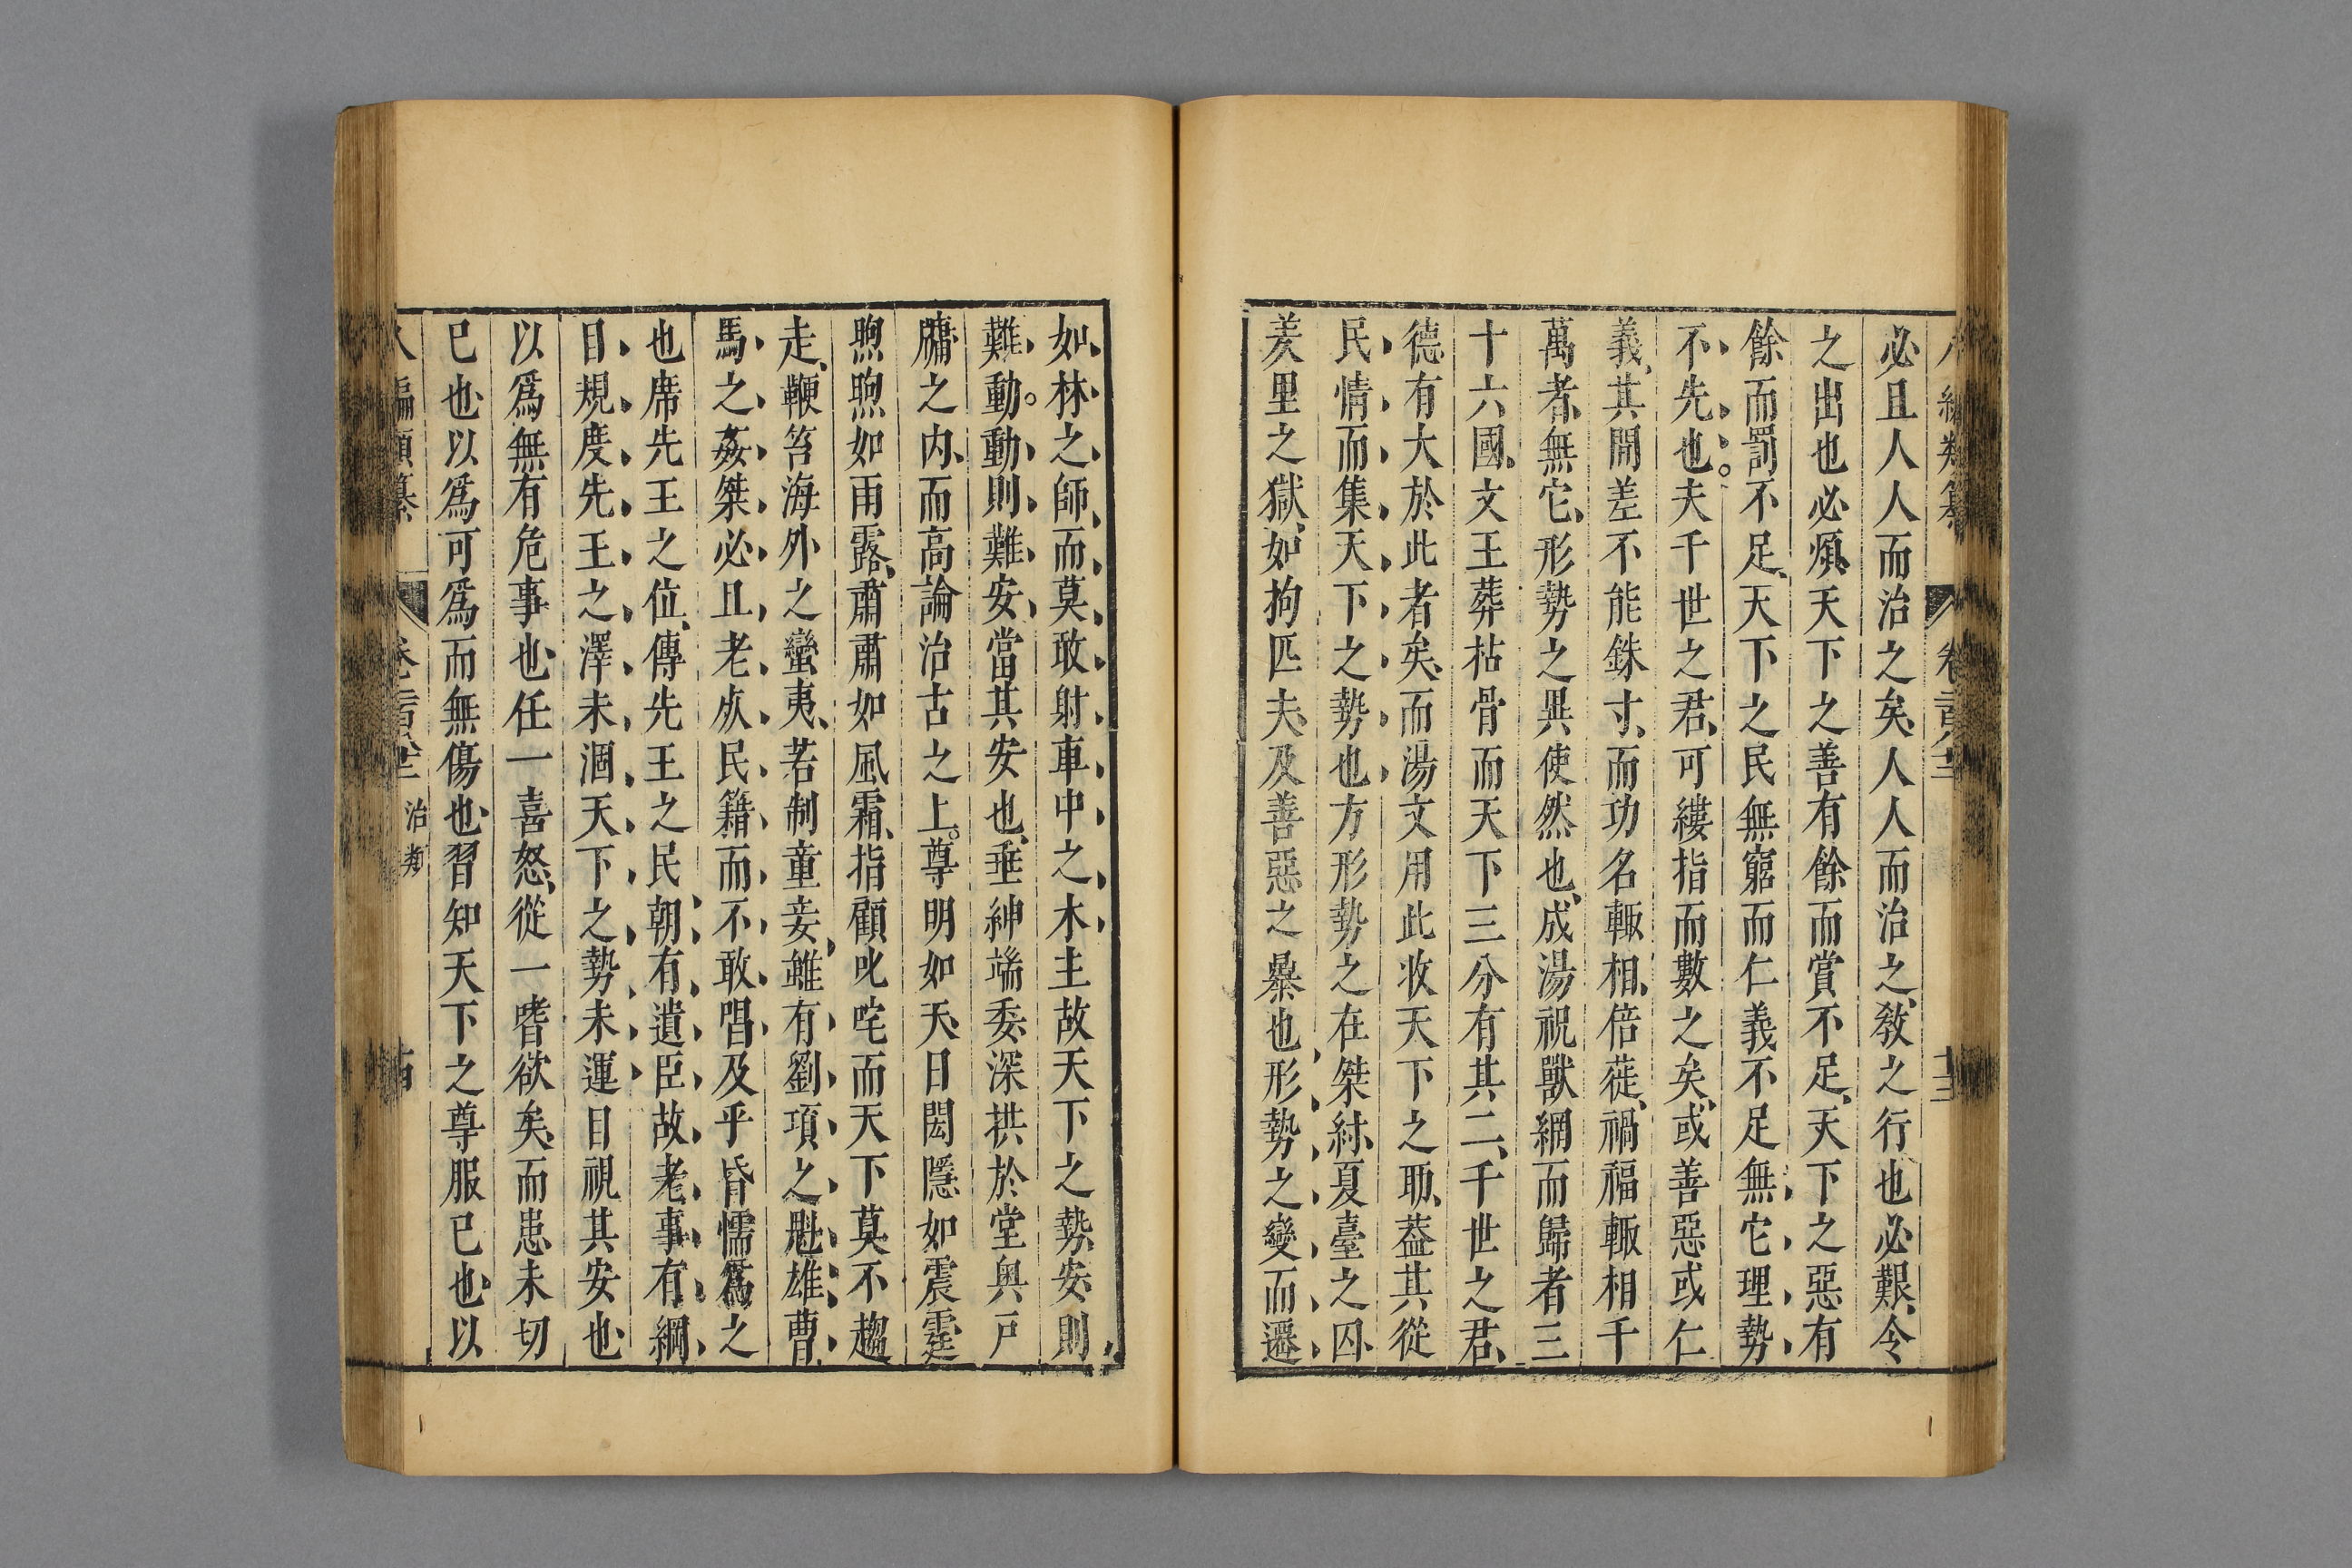 必且人人而治之矣人人而治之教之行也必艱令
之出也必煩天下之善有餘而賞不足天下之惡有
餘而罰不足天下之民無窮而仁義不足無它理勢
不先也夫千世之君可縷指而數之矣或善惡或仁
義其開差不能銖寸而功名輙相倍蓰禍福輙相千
萬者無它形勢之異使然也成湯祝獸網而歸者三
十六國文王葬枯骨而天下三分有其二千世之君
德有大於此者矣而湯文用此收天下之聏葢其從
民情而集天下之勢也方形勢之在桀紂夏臺之囚
羑里之獄如拘匹夫及善惡之暴也形勢之變而遷
如林之師而莫敢射車中之木主故天下之勢安則
難動動則難安當其安也垂紳端委深拱於堂奥戸
牗之内而高論治古之上尊明如天日閎隱如震霆
煦煦如雨露肅肅如風霜指顧叱咤而天下莫不趨
走鞭笞海外之蠻夷若制童妾雖有劉項之魁雄曹
馬之姦桀必且老㱕民籍而不敢唱及乎昏懦爲之
也席先王之位傳先王之民朝有遺臣故老事有綱
目規度先王之澤未涸天下之勢未運目視其安也
以爲無有危事也任一喜怒從一嗜欲矣而患未切
已也以爲可爲而無傷也習知天下之尊服已也以
八編類纂 治類